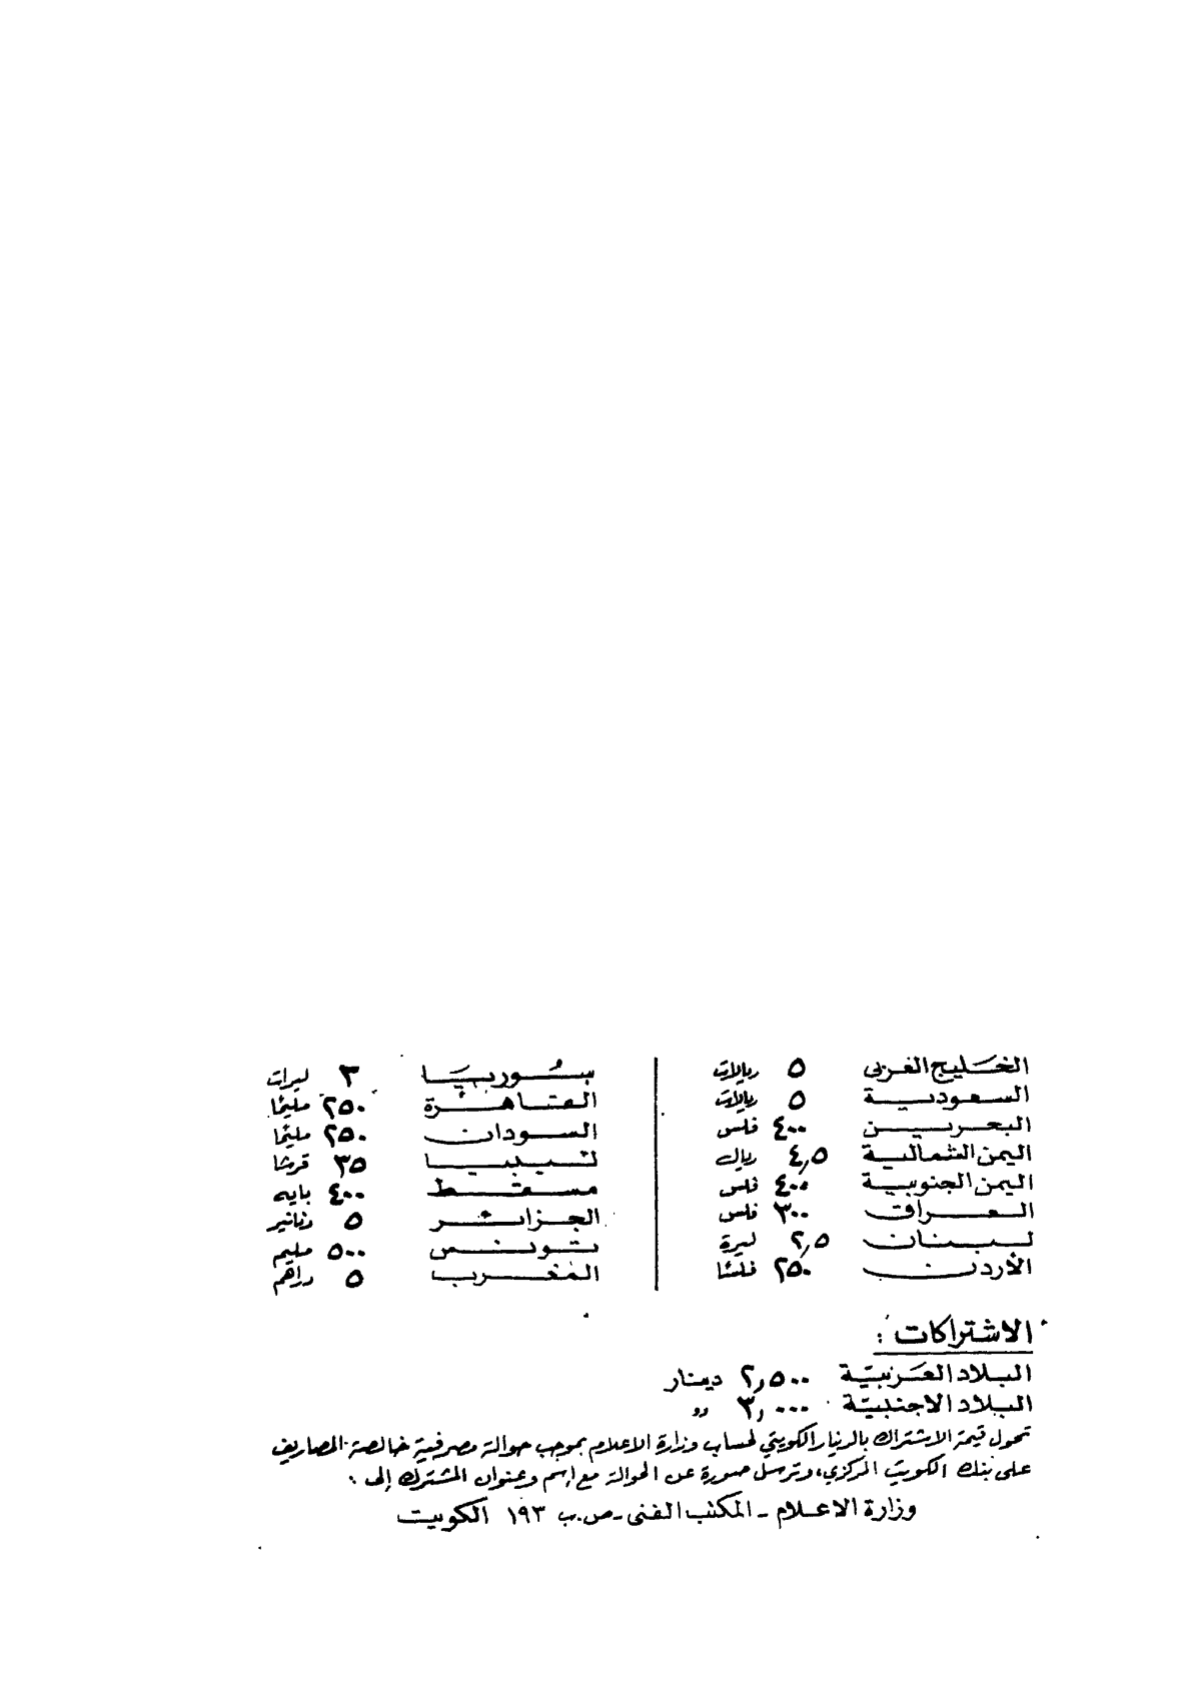 الخليج العربي ٥ ريالات
السعودية ٥ ريالات
البحرين ٤٠٠ فلس
اليمن الشمالية ٤٫٥ ريال
اليمن الجنوبية ٤٠٠ فلس
العراق ٣٠٠ فلس
لبنان ٢٫٥ ليرة
الأردن ٢٥٠ فلسًا
سوريا ٣ ليرات
القاهرة ٢٥٠ مليمًا
السودان ٢٥٠ مليمًا
ليبيا ٣٥ قرشا
مسقط ٤٠٠ بايه
الجزائر ٥ دنانير
تونس ٥٠٠ مليم
المغرب ٥ دراهم
الاشتراكات :
البلاد العربية ٢٫٥٠٠ دينار
البلاد الاجنبية ٣٫٠٠٠ "
تحول قيمة الاشتراك بالدينار الكويتي لحساب وزارة الاعلام بموجب حوالة مصرفية خالصة المصاريف
على بنك الكويت المركزي، وترسل صورة عن الحوالة مع إسم وعنوان المشترك إلى :
وزارة الاعلام - المكتب الفني - ص.ب ١٩٣ الكويت